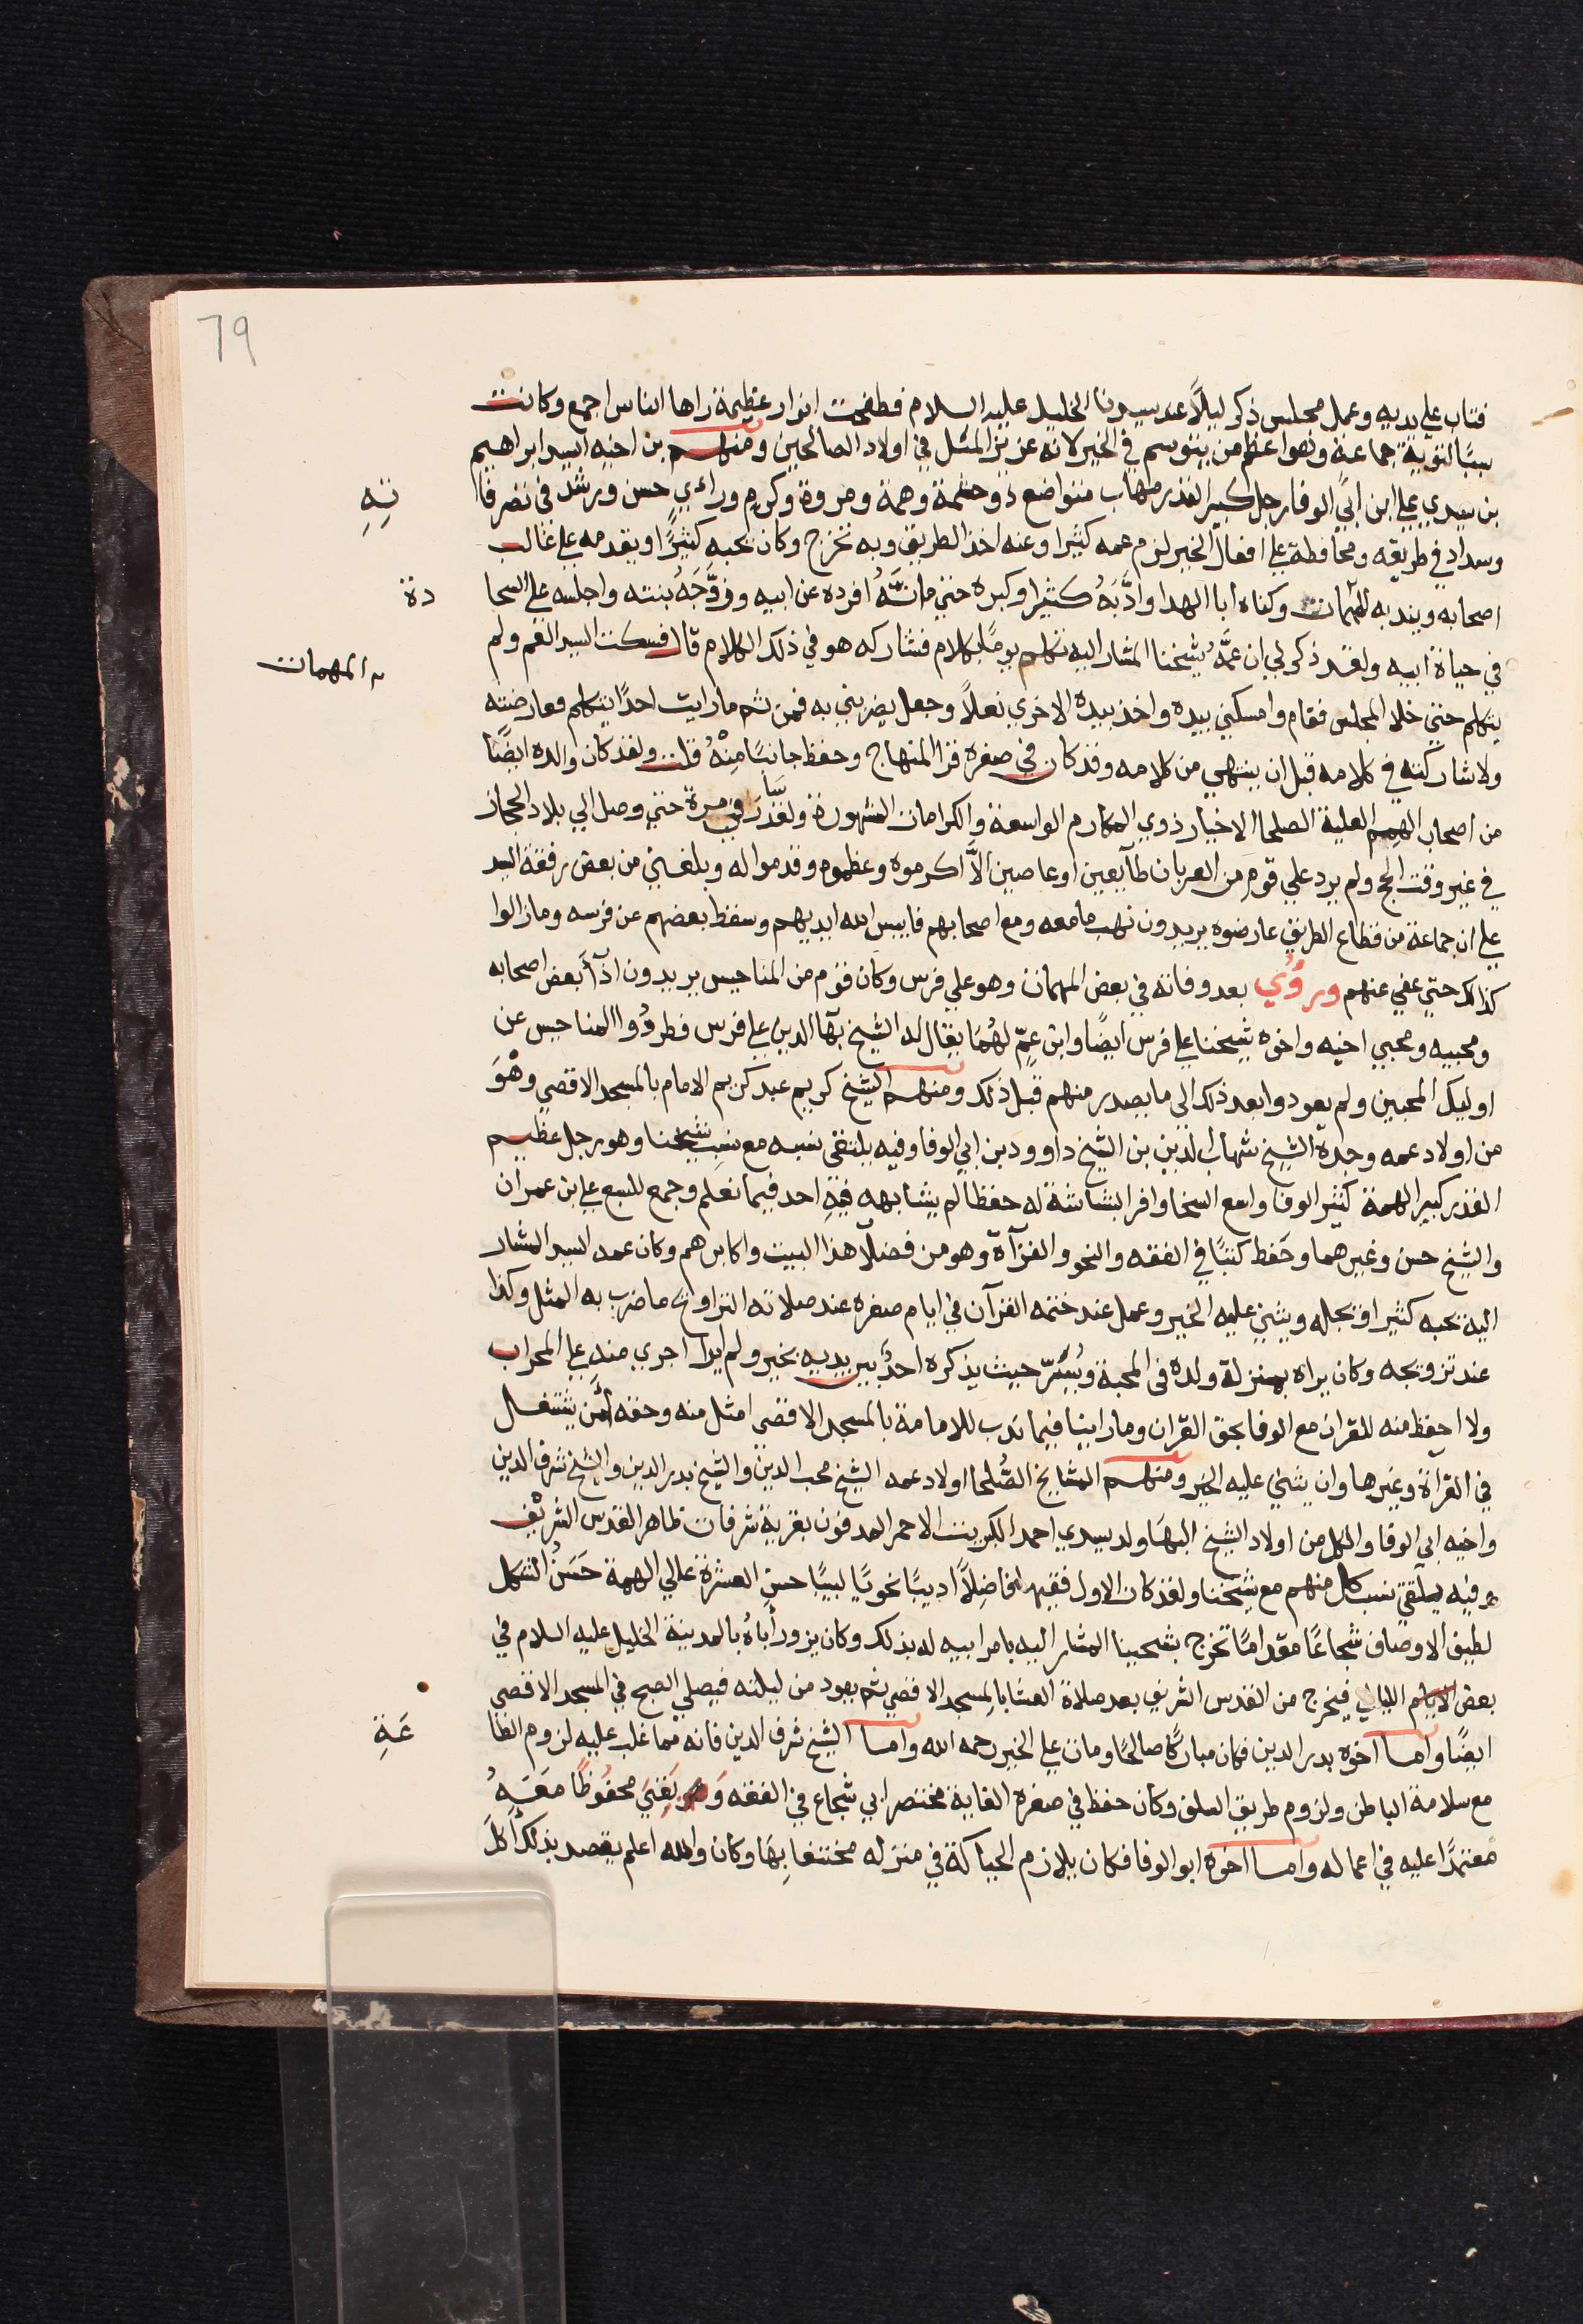 79
فتاب علي يديه وعمل مجلس ذكر ليلاً عند سيدنا الخليل عليه السلام فطفحت انوار عظيمة راها الناس اجمع وكانت
سببًا لتوبة جماعة وهو اعظم من يتوسم في الخير لانه عزيز المثل في اولاد الصالحين ومنهم بن اخيه السيد ابراهيم
بن سيدي علي ابن ابي الوفا رجل كبير القدر مهاب متواضع ذو حشمة وهمة ومروة وكرم وراي حسن ورشد في تصرفا
تِهِ
وسداد في طريقه ومحافظة علي افعال الخير لزم عمه كثيرا وعنه اخذ الطريق وبه تخرج وكان يحبه كثيرًا ويقدمه علي غالب
اصحابه ويندبه للمهمات وكناه ابا الهدا وادَّبَهُ كثيرا وكبره حتي مانَّهُ افرده عن ابيه وزوَّجَهُ بنته واجلسه علي السجا
دة
في حياة ابيه ولقد ذكر لي ان عمَّهُ شيخنا المشار اليه تكلم يومًا بكلام فشاركه هو في ذلك الكلام قال فسكت السيد العم ولم
المهمات
يتكلم حتي خلا المجلس فقام وامسكني بيده واخذ بيده الاخري نعلاً وجعل يضربني به فمن ثم ما رايت احدًا يتكلم فعارضته
ولا شاركته في كلامه قبل ان ينتهي من كلامه وقد كان في صغره قرا المنهاج وحفظ جانبًا مِنْهُ قلت ولقد كان والده ايضًا
من اصحاب الهمم العلية الصلحا الاخيار ذوي المكارم الواسعة والكرامات المشهورة ولقد مرة حتي وصل الي بلاد الحجاز
في غير وقت الحج ولم يرد علي قومٍ من العربان طايعين او عاصين الاَّ اكرموه وعظموه وقدموا له وبلغني من بعض رفقة السيد
علي ان جماعة من قطاع الطريق عارضوه يريدون نهب ما معه ومع اصحابهم فايبس الله ايديهم وسقط بعضهم عن فرسه وما زالوا
كذلك حتي عفي عنهم ورؤي بعد وفاته في بعض المهمات وهو علي فرس وكان قوم من المناحيس يريدون اذآ بعض اصحابه
ومحبيه ومحبي اخيه واخوه شيخنا علي فرس ايضًا وابن عمٍّ لهُمَا يقال له الشيخ بهآ الدين علي فرس فطردُوا المناحيس عن
اوليك المحبين ولم يعودوا بعد ذلك الي ما يصدر منهم قبل ذلك ومنهم الشيخ كريم عبد كريم الامام بالمسجد الاقصي وهْوَ
من اولاد عمه وجده الشيخ شهاب الدين بن الشيخ داوود بن ابي الوفا وفيه يلتقي نسبه مع نسب شيخنا وهو رجل عظيم
القدر كبير الهمة كثير الوفا واسع السخا وافر البشاشة له حفظا لم يشابهه فيهِ احد فيما نعلم وجمع للسبع علي بن عمران
والشيخ حسن وغيرهما وحفظ كتبًا في الفقه والنحو والقرآة وهو من فضلآ هذا البيت واكابرهم وكان عمه السيد المشار
اليه يحبه كثيرا ويجله ويثني عليه الخير وعمل عند ختمه القرآن في ايام صغره عند صلاته التراويح ما ضرب به المثل وكذا
عند تزويجه وكان يراه بمنزلة ولده في المحبة ويُسَرّ حيث يذكره احدٌ بين يديه بخير ولم ار اجري منه علي المحراب
ولا احفظ منه للقران مع الوفا بحق القران وما راينا فيما ندب للامامة بالمسجد الاقصي امثل منه وحقه ان يشتغل
في القراة وغيرها وان يثني عليه الخير ومنهم المشايخ الصُّلحا اولاد عمه الشيخ محب الدين والشيخ بدر الدين والشيخ شرف الدين
واخيه ابي الوفا والكل من اولاد الشيخ البهَا ولد سيدي احمد الكبريت الاحمر المدفون بقرية شرفات ظاهر القدس الشريْف
وفيه يلتقي نسب كل منهم مع شيخنا ولقد كان الاول فقيهًا فاضلاً اديبًا نحويًا لبيبًا حسن العشرة عالي الهمة حَسَنُ الشكل
لطيف الاوصاف شجاعًا مقدامًا تخرج بشيخنا المشار اليه بامر ابيه له بذلك وكان يزور أباهُ بالمدينة الخليل عليه السلام في
بعض الايام الليالي فيخرج من القدس الشريف بعد صلاة العشا بالمسجد الاقصي ثم يعود من ليلته فيصلي الصبح في المسجد الاقصي
ايضًا واما اخوه بدر الدين فكان مباركًا صالحًا ومات علي الخير رحمه الله واما الشيخ شرف الدين فانه مما غلب عليه لزوم الطا
عَةِ
مع سلامة الباطن ولزوم طريق السلف وكان حفظ في صغره الغاية مختصر ابي شجاع في الفقه وَ بَقِيَ محفُوظًا مَعَهُ
مُعتمدًا عليه في اعماله واما اخوه ابو الوفا فكان يلازم الحياكة في منزله مختفيا بِهَا وكان والله اعلم يقصد بذلك أَكلَ